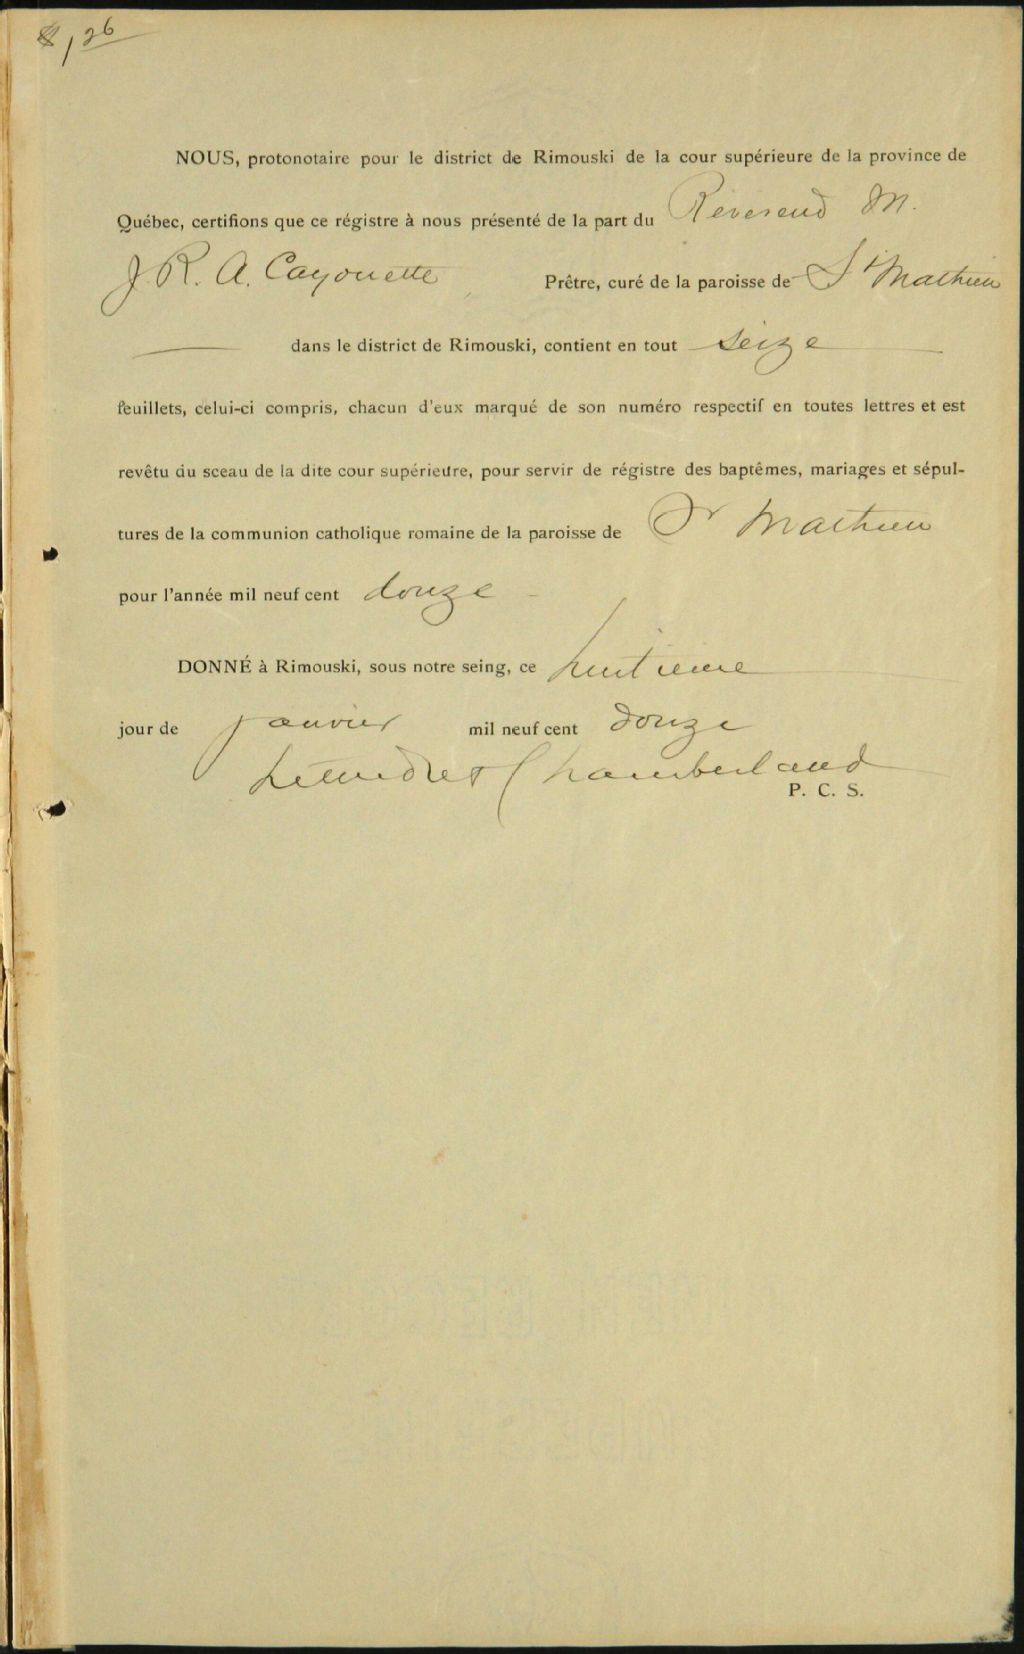 $1,26
NOUS, protonotaire pour le district de Rimouski de la cour supérieure de la province de
Québec, certifions que ce régistre à nous présenté de la part du Révérend M.
J. R. A. Cayouette Prêtre, curé de la paroisse de St Mathieu
dans le district de Rimouski, contient en tout seize
feuillets, celui-ci compris, chacun d'eux marqué de son numéro respectif en toutes lettres et est
revêtu du sceau de la dite cour supérieure, pour servir de régistre des baptêmes, mariages et sépul-
tures de la communion catholique romaine de la paroisse de St Mathieu
pour l'année mil neuf cent douze
DONNÉ à Rimouski, sous notre seing, ce huitieme
jour de janvier mil neuf cent douze
Chamberland
P. C. S.